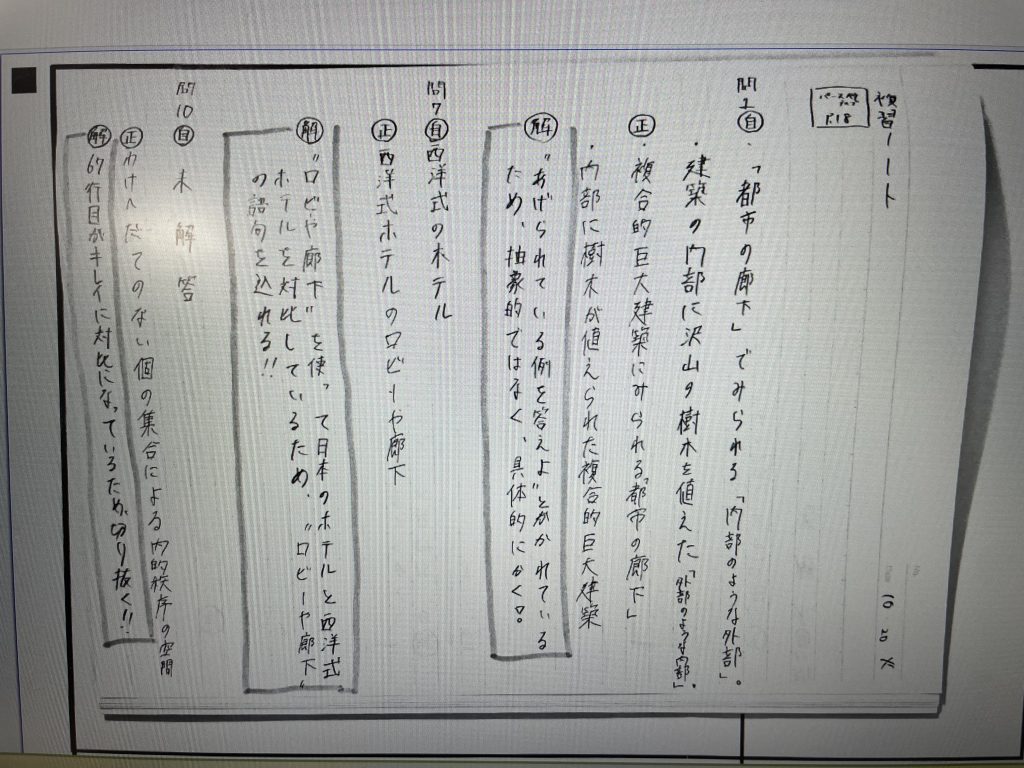 復習ノート
P.18
10 20
問1 自 ・「都市の廊下」でみられる「内部のような外部」。
・建築の内部に沢山の樹木を値えた「外部のような内部」.
正 ・複合的巨大建築にみられる「都市の廊下」
・内部に樹木が値えられた複合的巨大建築
解 "あげられている例を答えよ"とかかれている
ため、抽象的ではなく、具体的にかく。
問7 自 西洋式のホテル
正 西洋式ホテルのロビーや廊下
解 "ロビや廊下"を使って日本のホテルと西洋式
ホテルを対比しているため、"ロビーや廊下"
の語句を込れる!!
問10 自 未解答
正 わけへだてのない個の集合による内的秩序の空間
解 67行目がキレイに対比になっているため、切り抜く!!